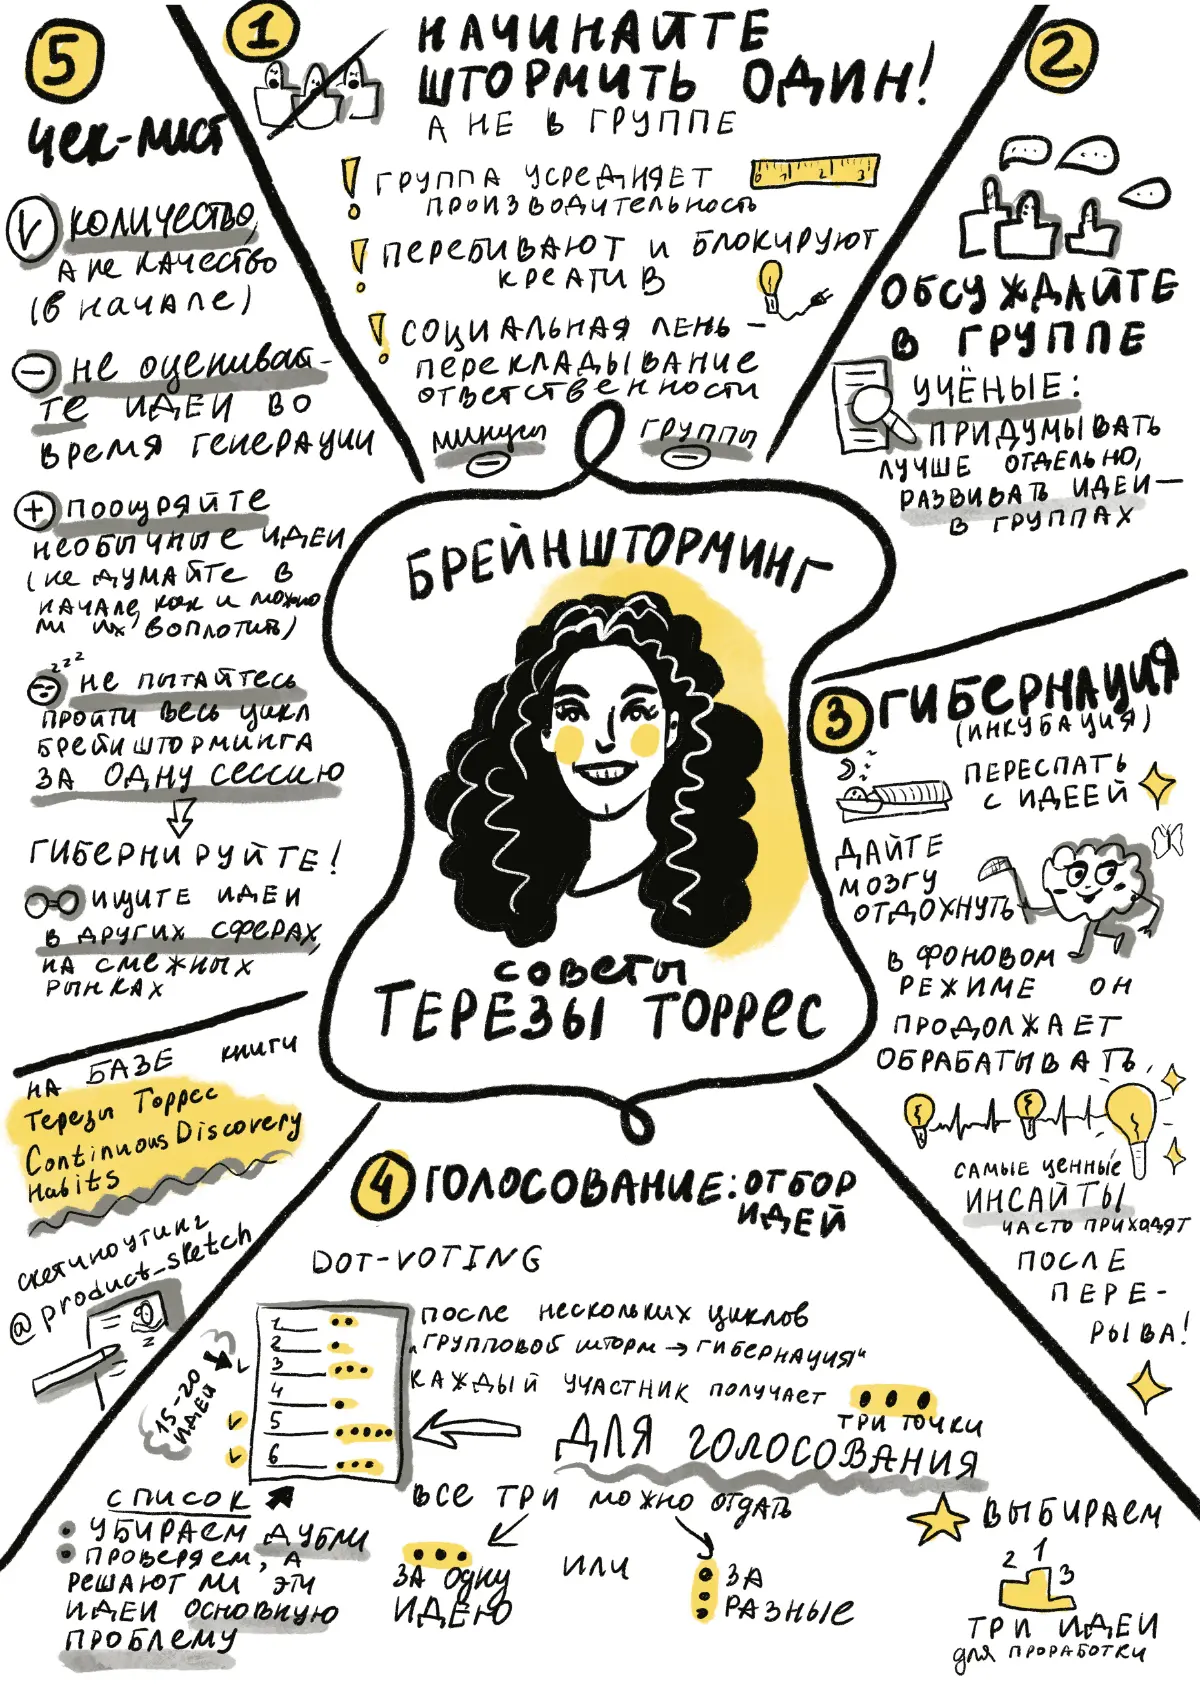 БРЕЙНШТОРМИНГ
советы
ТЕРЕЗЫ ТОРРЕС
1
НАЧИНАЙТЕ
ШТОРМИТЬ ОДИН!
А НЕ В ГРУППЕ
! ГРУППА УСРЕДНЯЕТ
ПРОИЗВОДИТЕЛЬНОСТЬ
0 1 2 3
! ПЕРЕБИВАЮТ И БЛОКИРУЮТ
КРЕАТИВ
! СОЦИАЛЬНАЯ ЛЕНЬ –
ПЕРЕКЛАДЫВАНИЕ
ОТВЕТСТВЕННОСТИ
МИНУСЫ ГРУППЫ
2
ОБСУЖДАЙТЕ
В ГРУППЕ
УЧЁНЫЕ:
ПРИДУМЫВАТЬ
ЛУЧШЕ ОТДЕЛЬНО,
РАЗВИВАТЬ ИДЕИ –
В ГРУППАХ
3
ГИБЕРНАЦИЯ
(ИНКУБАЦИЯ)
ПЕРЕСПАТЬ
С ИДЕЕЙ
ДАЙТЕ
МОЗГУ
ОТДОХНУТЬ
В ФОНОВОМ
РЕЖИМЕ ОН
ПРОДОЛЖАЕТ
ОБРАБАТЫВАТЬ
САМЫЕ ЦЕННЫЕ
ИНСАЙТЫ
ЧАСТО ПРИХОДЯТ
ПОСЛЕ
ПЕРЕ-
РЫВА!
4
ГОЛОСОВАНИЕ: ОТБОР
ИДЕЙ
DOT-VOTING
ПОСЛЕ НЕСКОЛЬКИХ ЦИКЛОВ
„ГРУППОВОЙ ШТОРМ → ГИБЕРНАЦИЯ“
КАЖДЫЙ УЧАСТНИК ПОЛУЧАЕТ
ТРИ ТОЧКИ
ДЛЯ ГОЛОСОВАНИЯ
1
2
3
4
5
6
15-20
ИДЕЙ
ВСЕ ТРИ МОЖНО ОТДАТЬ
ЗА ОДНУ
ИДЕЮ
ИЛИ
ЗА
РАЗНЫЕ
СПИСОК
• УБИРАЕМ ДУБЛИ
• ПРОВЕРЯЕМ, А
РЕШАЮТ ЛИ ЭТИ
ИДЕИ ОСНОВНУЮ
ПРОБЛЕМУ
ВЫБИРАЕМ
2 1 3
ТРИ ИДЕИ
для ПРОРАБОТКИ
5
ЧЕК-ЛИСТ
КОЛИЧЕСТВО,
А НЕ КАЧЕСТВО
(В НАЧАЛЕ)
НЕ ОЦЕНИВАЙ-
ТЕ ИДЕИ ВО
ВРЕМЯ ГЕНЕРАЦИИ
ПООЩРЯЙТЕ
НЕОБЫЧНЫЕ ИДЕИ
(НЕ ДУМАЙТЕ В
НАЧАЛЕ, КАК И МОЖНО
ЛИ ИХ ВОПЛОТИТЬ)
zzz
НЕ ПЫТАЙТЕСЬ
ПРОЙТИ ВЕСЬ ЦИКЛ
БРЕЙНШТОРМИНГА
ЗА ОДНУ СЕССИЮ
ГИБЕРНИРУЙТЕ!
ИЩИТЕ ИДЕИ
В ДРУГИХ СФЕРАХ,
НА СМЕЖНЫХ
РЫНКАХ
НА БАЗЕ КНИГИ
Терезы Торрес
Continuous Discovery
Habits
скетчноутинг
@product_sketch